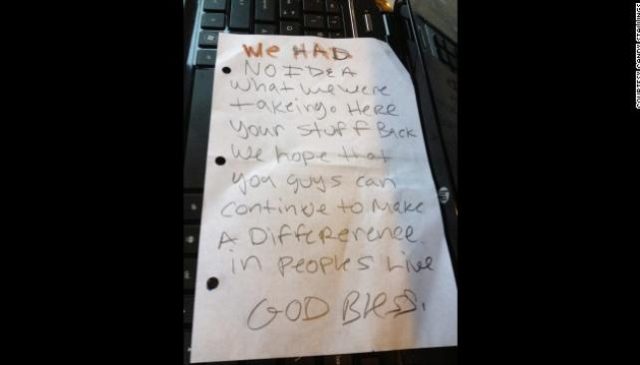 We HAD
NO IDEA
what we were
takeing. Here
your stuff Back
We hope that
you guys can
continue to Make
A Differerence
in Peoples Live
GOD Bless.
hp